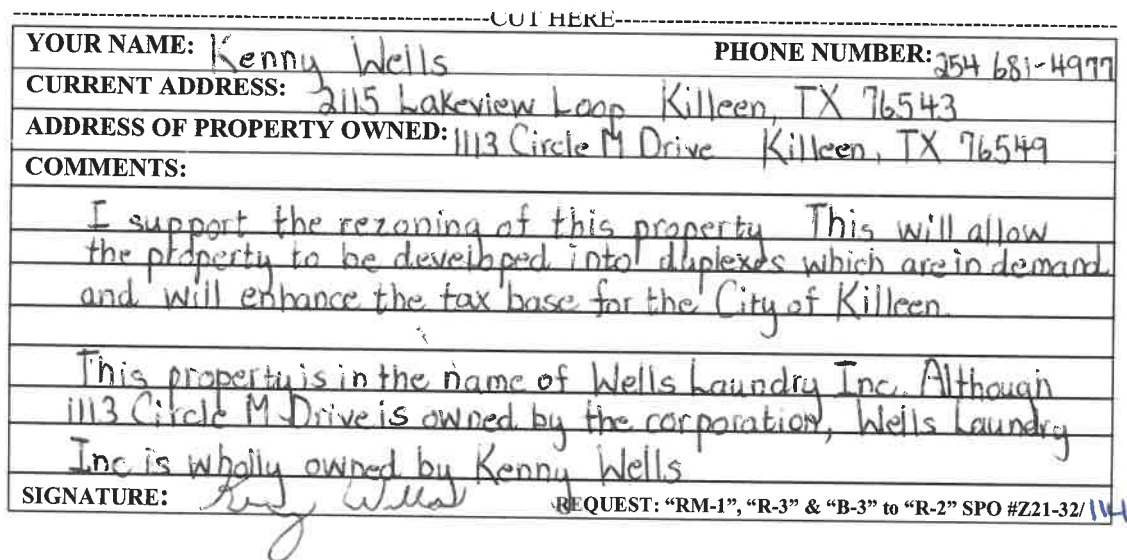 CUT HERE
YOUR NAME: Kenny Wells PHONE NUMBER: 254 681-4977
CURRENT ADDRESS: 2115 Lakeview Loop Killeen, TX 76543
ADDRESS OF PROPERTY OWNED: 1113 Circle M Drive Killeen, TX 76549
COMMENTS:
I support the rezoning of this property This will allow
the property to be developed into duplexes which are in demand
and will enhance the tax base for the City of Killeen
This property is in the name of Wells Laundry Inc. Although
1113 Circle M Drive is owned by the corporation, Wells Laundry
Inc is wholly owned by Kenny Wells
SIGNATURE: Kenny Wells REQUEST: "RM-1", "R-3" & "B-3" to "R-2" SPO #Z21-32/114